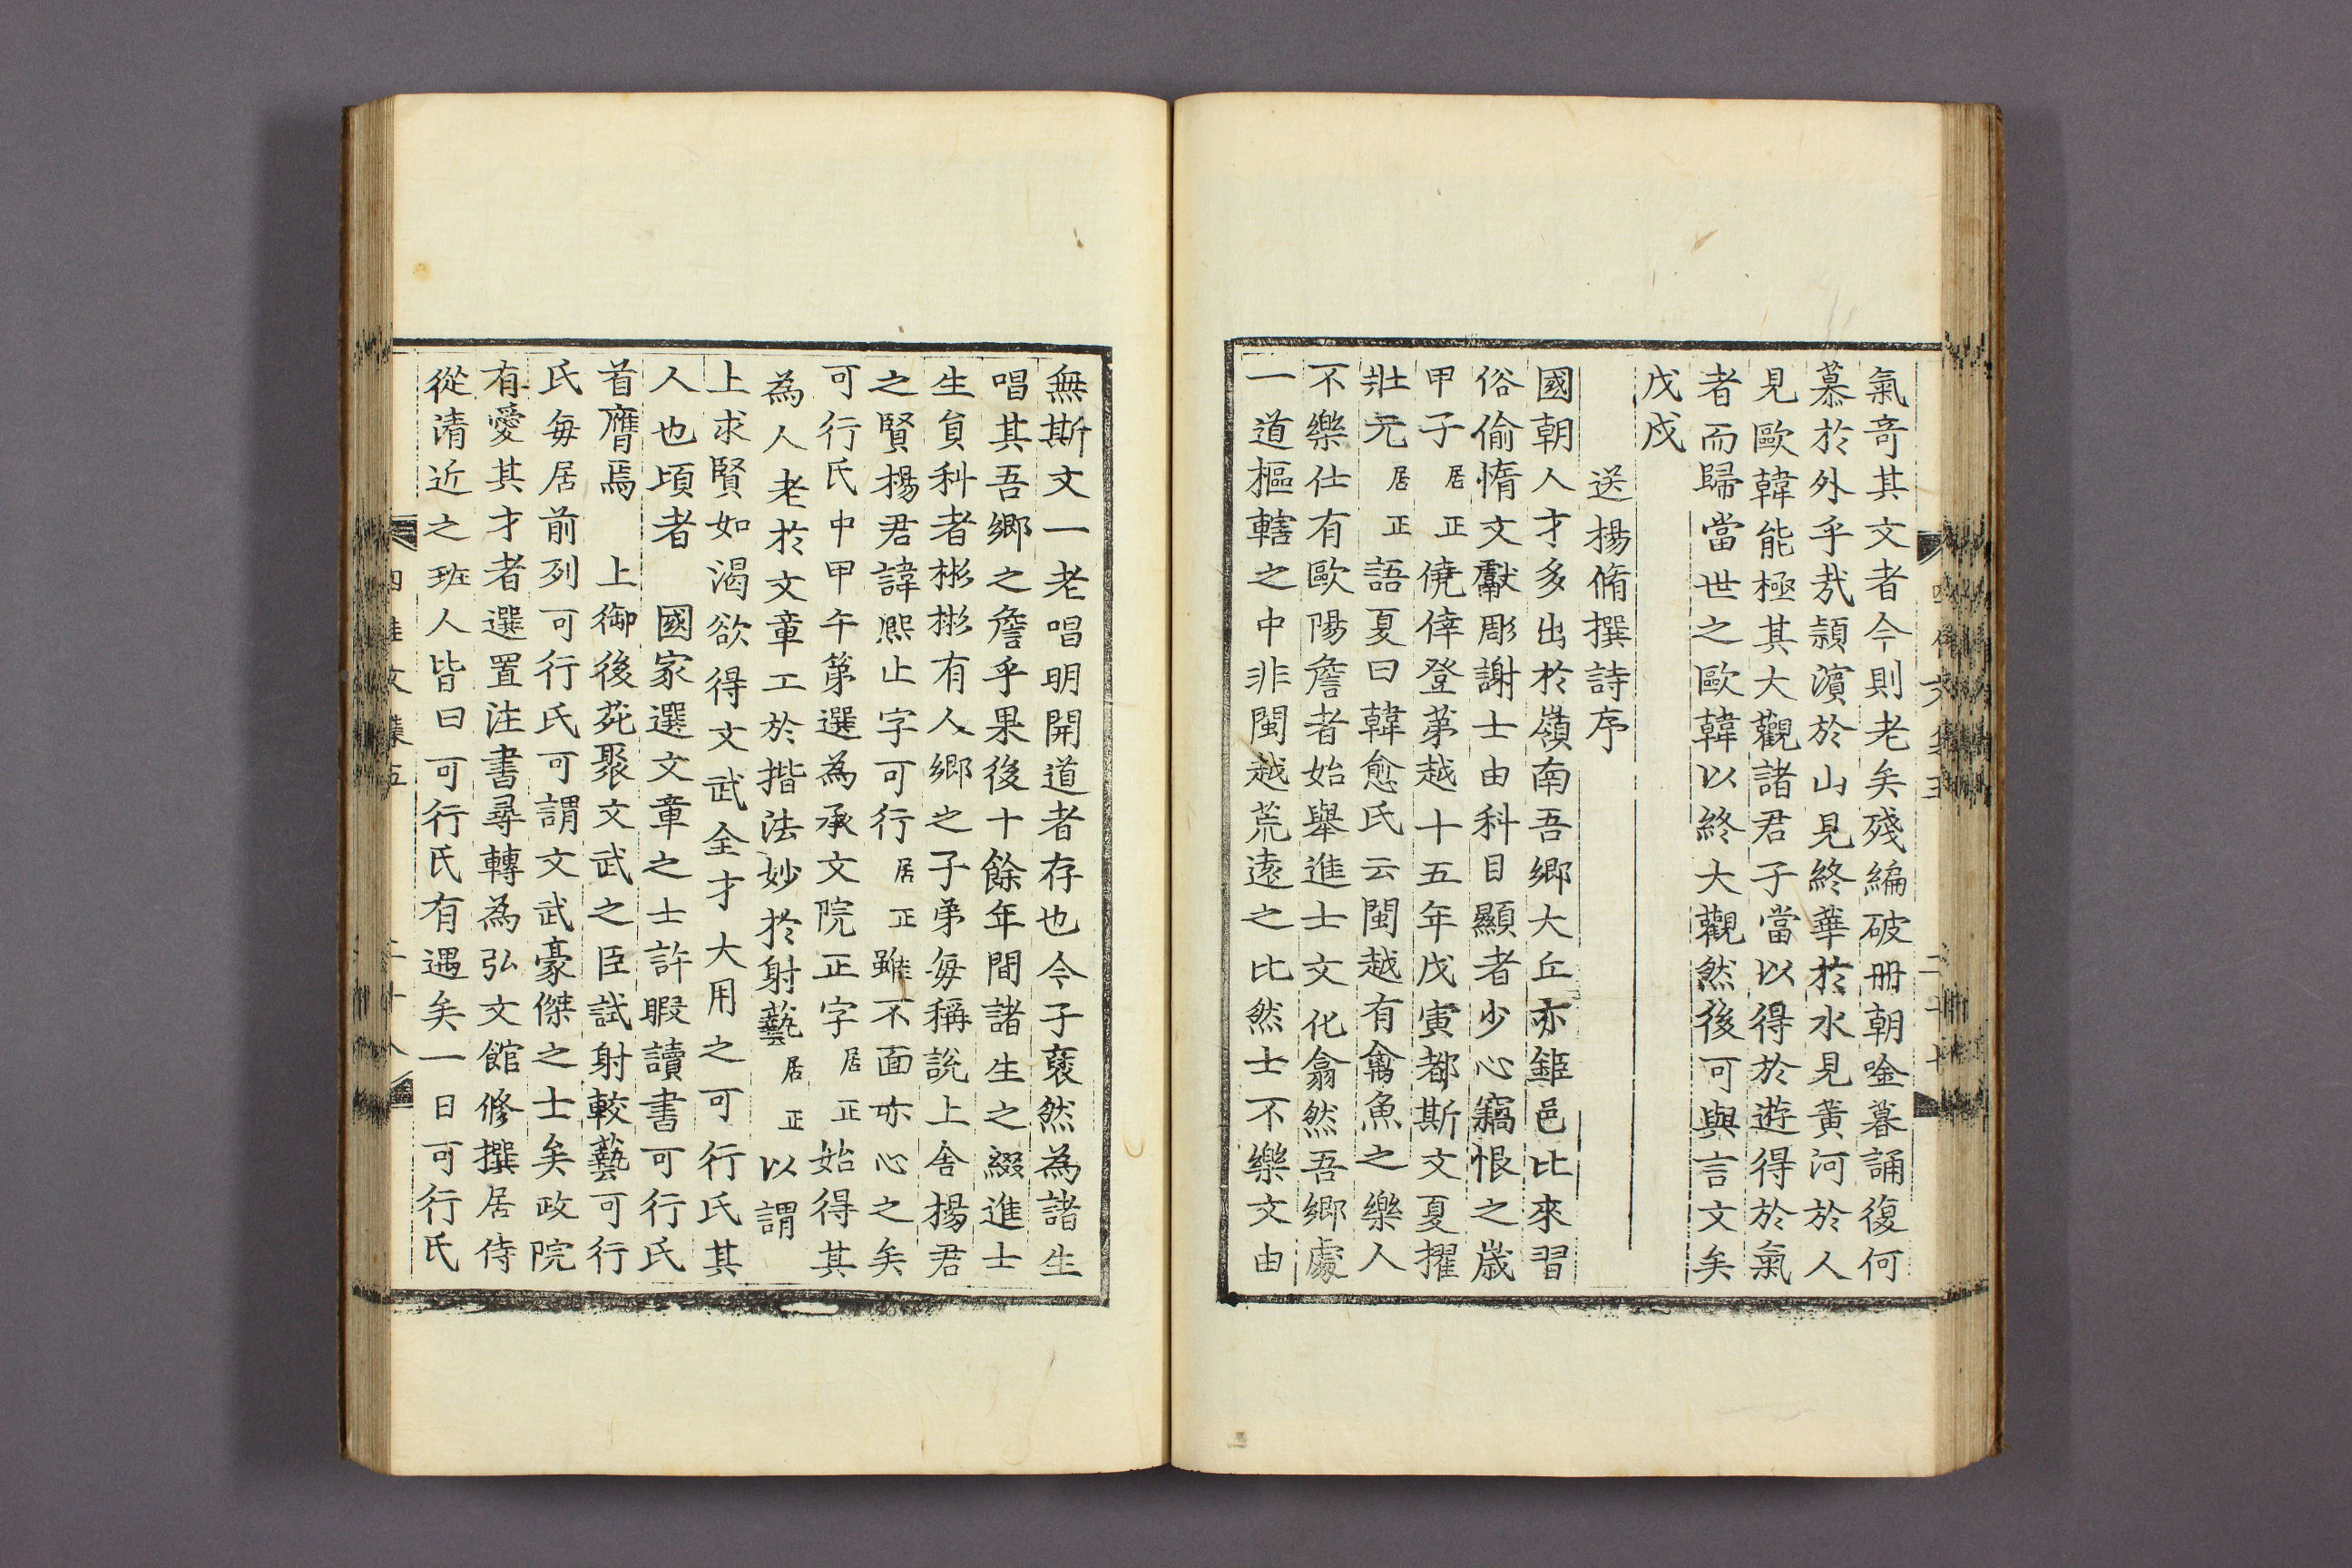 氣竒其文者今則老矣殘編破册朝唫暮誦復何
慕於外乎㢤潁濱於山見終華於水見黄河於人
見歐韓能極其大觀諸君子當以得於遊得於氣
者而歸當世之歐韓以終大觀然後可與言文矣
戊戌
送楊脩撰詩序
國朝人才多出於嶺南吾鄉大丘亦鉅邑比來習
俗偷惰文獻彫謝士由科目顯者少心竊恨之歲
甲子居正僥倖登第越十五年戊寅都斯文夏擢
壯元居正語夏曰韓愈氏云閩越有禽魚之樂人
不樂仕有歐陽詹者始舉進士文化翕然吾鄉處
一道樞轄之中非閩越荒遠之比然士不樂文由
無斯文一老唱明開道者存也今子褎然為諸生
唱其吾鄉之詹乎果後十餘年間諸生之綴進士
生貟科者彬彬有人鄉之子弟每稱說上舍楊君
之賢楊君諱熈止字可行居正雖不面亦心之矣
可行氏中甲午第選為承文院正字居正始得其
為人老於文章工於揩法妙於射藝居正以謂
上求賢如渴欲得文武全才大用之可行氏其
人也頃者 國家選文章之士許暇讀書可行氏
首膺焉 上御後苑聚文武之臣試射較藝可行
氏每居前列可行氏可謂文武豪傑之士矣政院
有愛其才者選置注書尋轉為弘文館修撰居侍
從清近之班人皆曰可行氏有遇矣一日可行氏